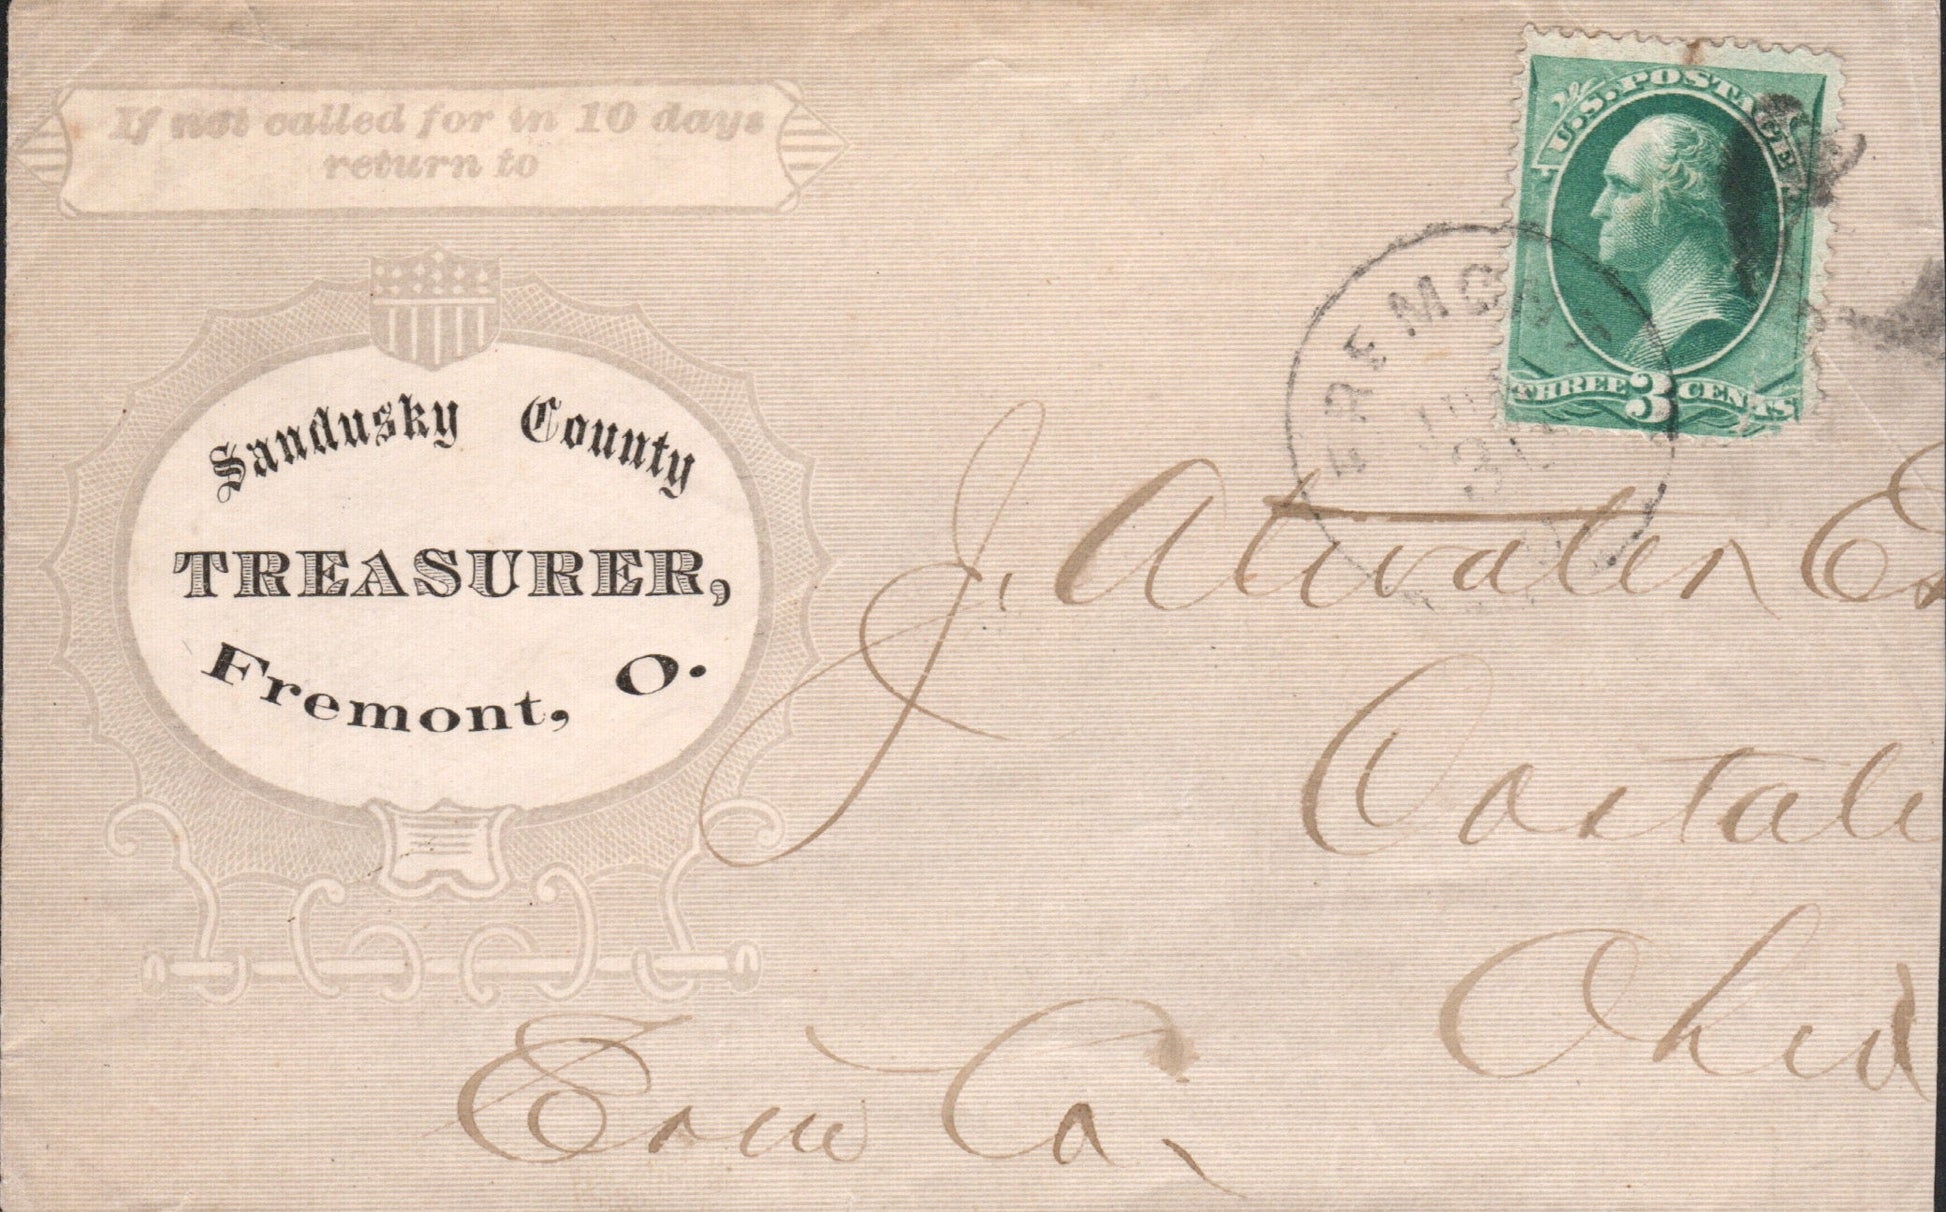 If not called for in 10 days
return to
Sandusky County
TREASURER,
Fremont, O.
U.S. POSTAGE
THREE 3 CENTS
FREMONT
J. Atwater
Ohio
Erie Co.